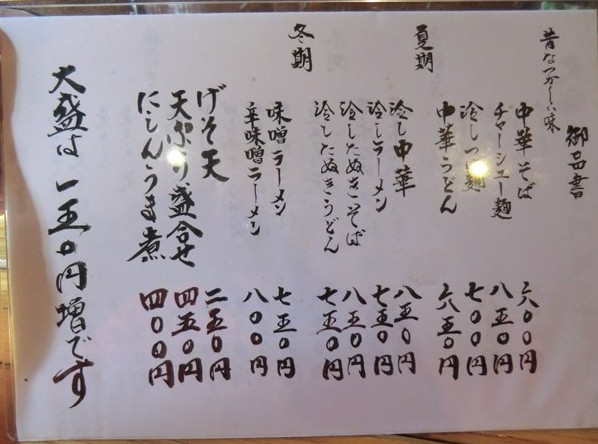 昔なつかしい味
御品書
中華そば 六〇〇円
チャーシュー麺 八五〇円
冷しつ麺 七〇〇円
中華うどん 六五〇円
夏期
冷し中華 八五〇円
冷しラーメン 七五〇円
冷したぬきそば 八五〇円
冷したぬきうどん 七五〇円
冬期
味噌ラーメン 七五〇円
辛味噌ラーメン 八〇〇円
げそ天 二五〇円
天ぷら盛合せ 四五〇円
にしんうま煮 四〇〇円
大盛は一五〇円増です